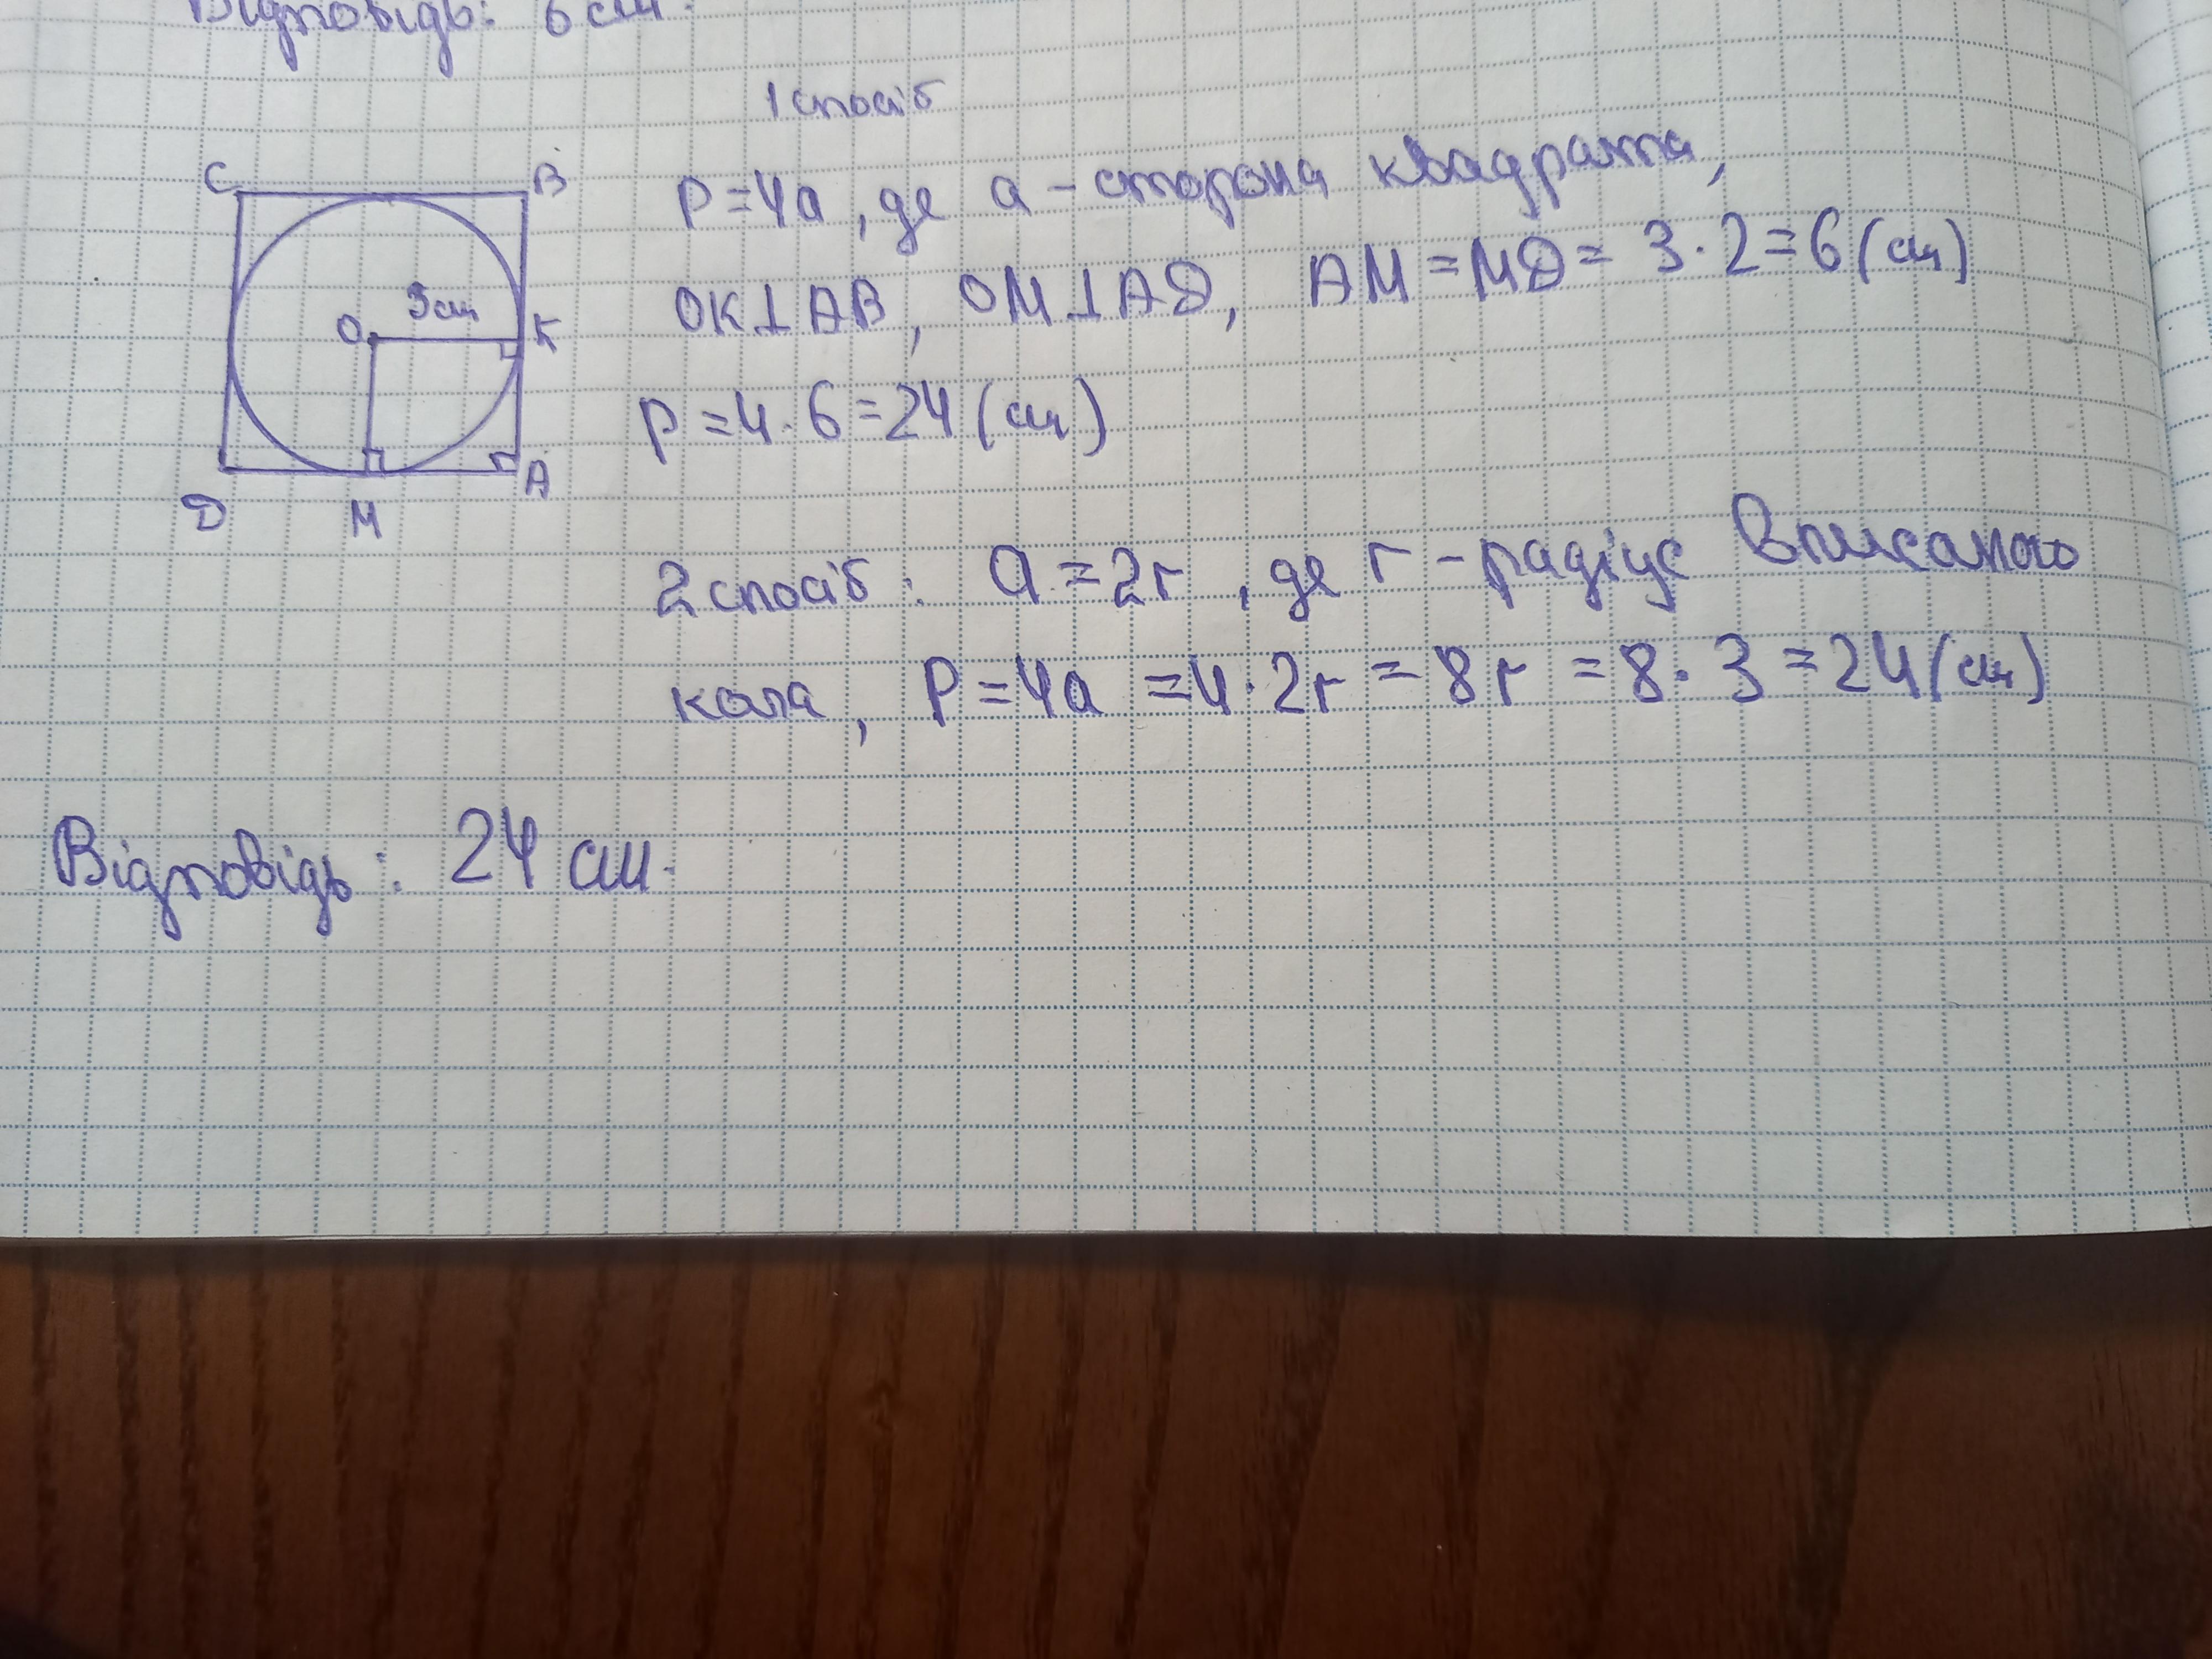 Відповідь: 6 см.
1 спосіб
C B
P = 4a, де a – сторона квадрата,
OK⊥AB, OM⊥AD, AM = MD = 3·2 = 6 (см)
O 3 см K
P = 4·6 = 24 (см)
D M A
2 спосіб: a = 2r, де r – радіус вписаного
кола, P = 4a = 4·2r = 8r = 8·3 = 24 (см)
Відповідь: 24 см.